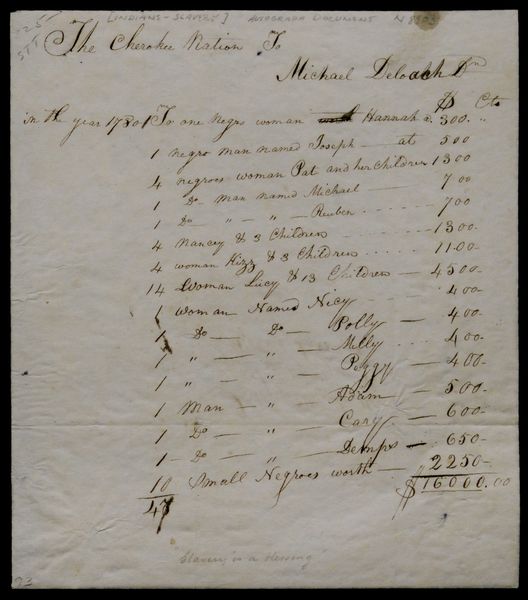 [INDIANS - SLAVERY] AUTOGRAPH DOCUMENT
The Cherokee Nation To
Michael Deloach Dr
$ Cts
in the year 1780 1 To one negro woman Hannah a. 300. "
1 negro man named Joseph — at 500
4 negroes woman Pat and her Children 1300
1 Do man named Michael — 700
1 Do — " — " — Reuben 700
4 Nancey & 3 Children 1300
4 woman Kizz & 3 Children 1100-
14 Woman Lucy & 13 Children — 4500-
1 woman Named Nicy 400
1 Do — Do — Polly — 400-
1 " — " — Milly 400
1 " — " — Peggy — 400-
1 Man — " — Adam — 500
1 Do — " — Cary — 600
1 Do — " — Demps — 650-
10 Small Negroes worth — 2250-
47 $16000.00
Slavery is a blessing